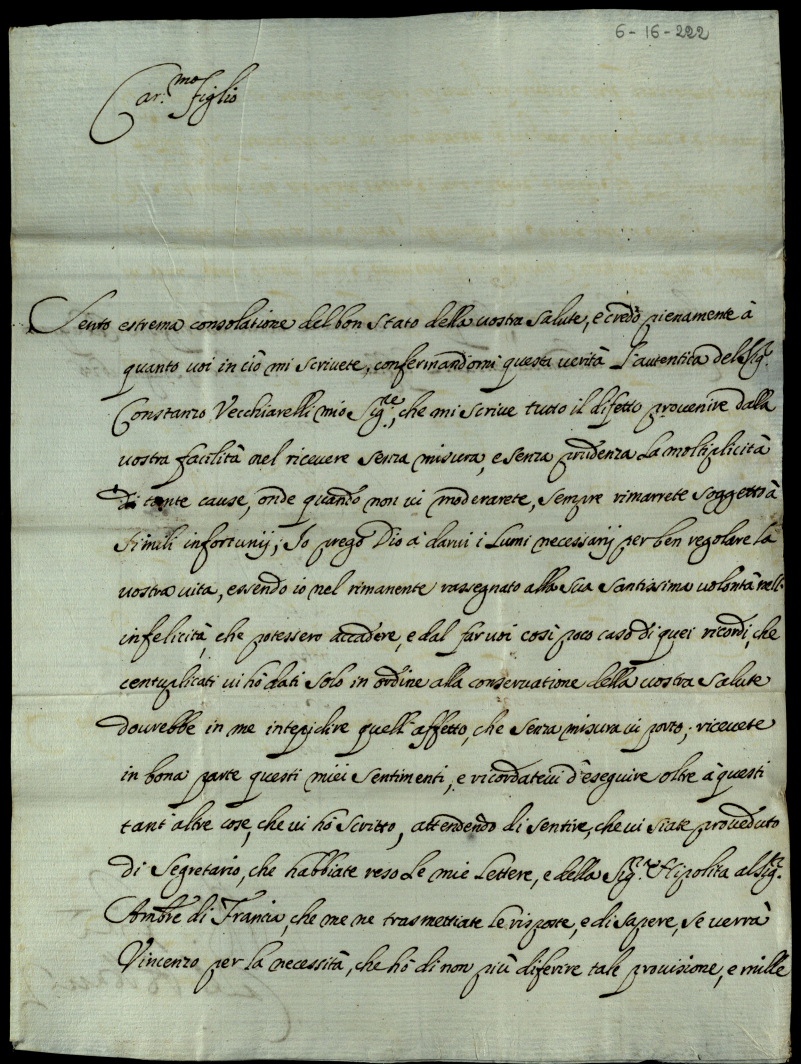 6-16-222
Car.mo figlio
Sento estrema consolatione del bon stato della vostra salute, e credo pienamente à
quanto voi in ciò mi scrivete, confermandomi questa verità l'autentica del Sig.r
Constanzo Vecchiarelli mio Sig.re, che mi scrive tutto il difetto provenire dalla
vostra facilità nel ricevere senza misura, e senza prudenza la moltiplicità
di tante cause, onde quando non vi moderarete, sempre rimarrete soggetto à
simili infortunij; Io prego Dio à darvi i lumi necessarij per ben regolare la
vostra vita, essendo io nel rimanente rassegnato alla sua santissima volontà nell'
infelicità, che potessero accadere, e dal far voi così poco caso di quei ricordi, che
centuplicati vi hò dati solo in ordine alla conservatione della vostra salute
dovrebbe in me intepidire quell'affetto, che senza misura vi porto; ricevete
in bona parte questi miei sentimenti, e ricordatevi d'eseguire oltre à questi
tant'altre cose, che vi hò scritto, attendendo di sentire, che vi siate proveduto
di Segretario, che habbiate reso le mie lettere, e della Sig.ra Hipolita al Sig.r
Ambre di Francia, che me ne trasmettiate le risposte, e di sapere, se verrà
Vincenzo per la necessità, che hò di non più diferire tale provisione, e mille